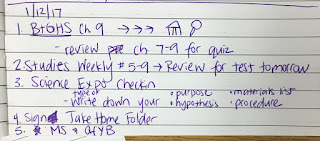 1/12/17
1. BtGHS Ch 9 → → →
- review ch 7-9 for quiz
2. Studies Weekly #5-9 → Review for test tomorrow
3. Science Expo Checkin
type of • purpose • materials list
- write down your • hypothesis • procedure
4. Sign Take Home folder
5. MS &